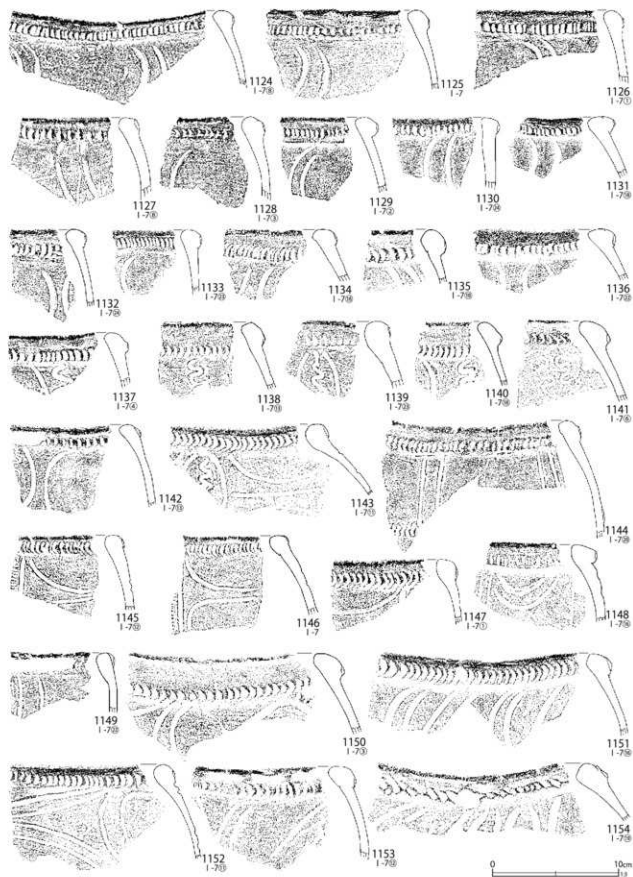 1124
I-7
1125
I-7
1126
I-7①
1127
I-7
1128
I-7③
1129
I-7②
1130
I-7
1131
I-7
1132
I-7
1133
I-7
1134
I-7
1135
I-7
1136
I-7
1137
I-7④
1138
I-7
1139
I-7
1140
I-7
1141
I-7
1142
I-7
1143
I-7⑪
1144
I-7
1145
I-7
1146
I-7
1147
I-7①
1148
I-7
1149
I-7
1150
I-7③
1151
I-7
1152
I-7⑪
1153
I-7
1154
I-7
0 10cm